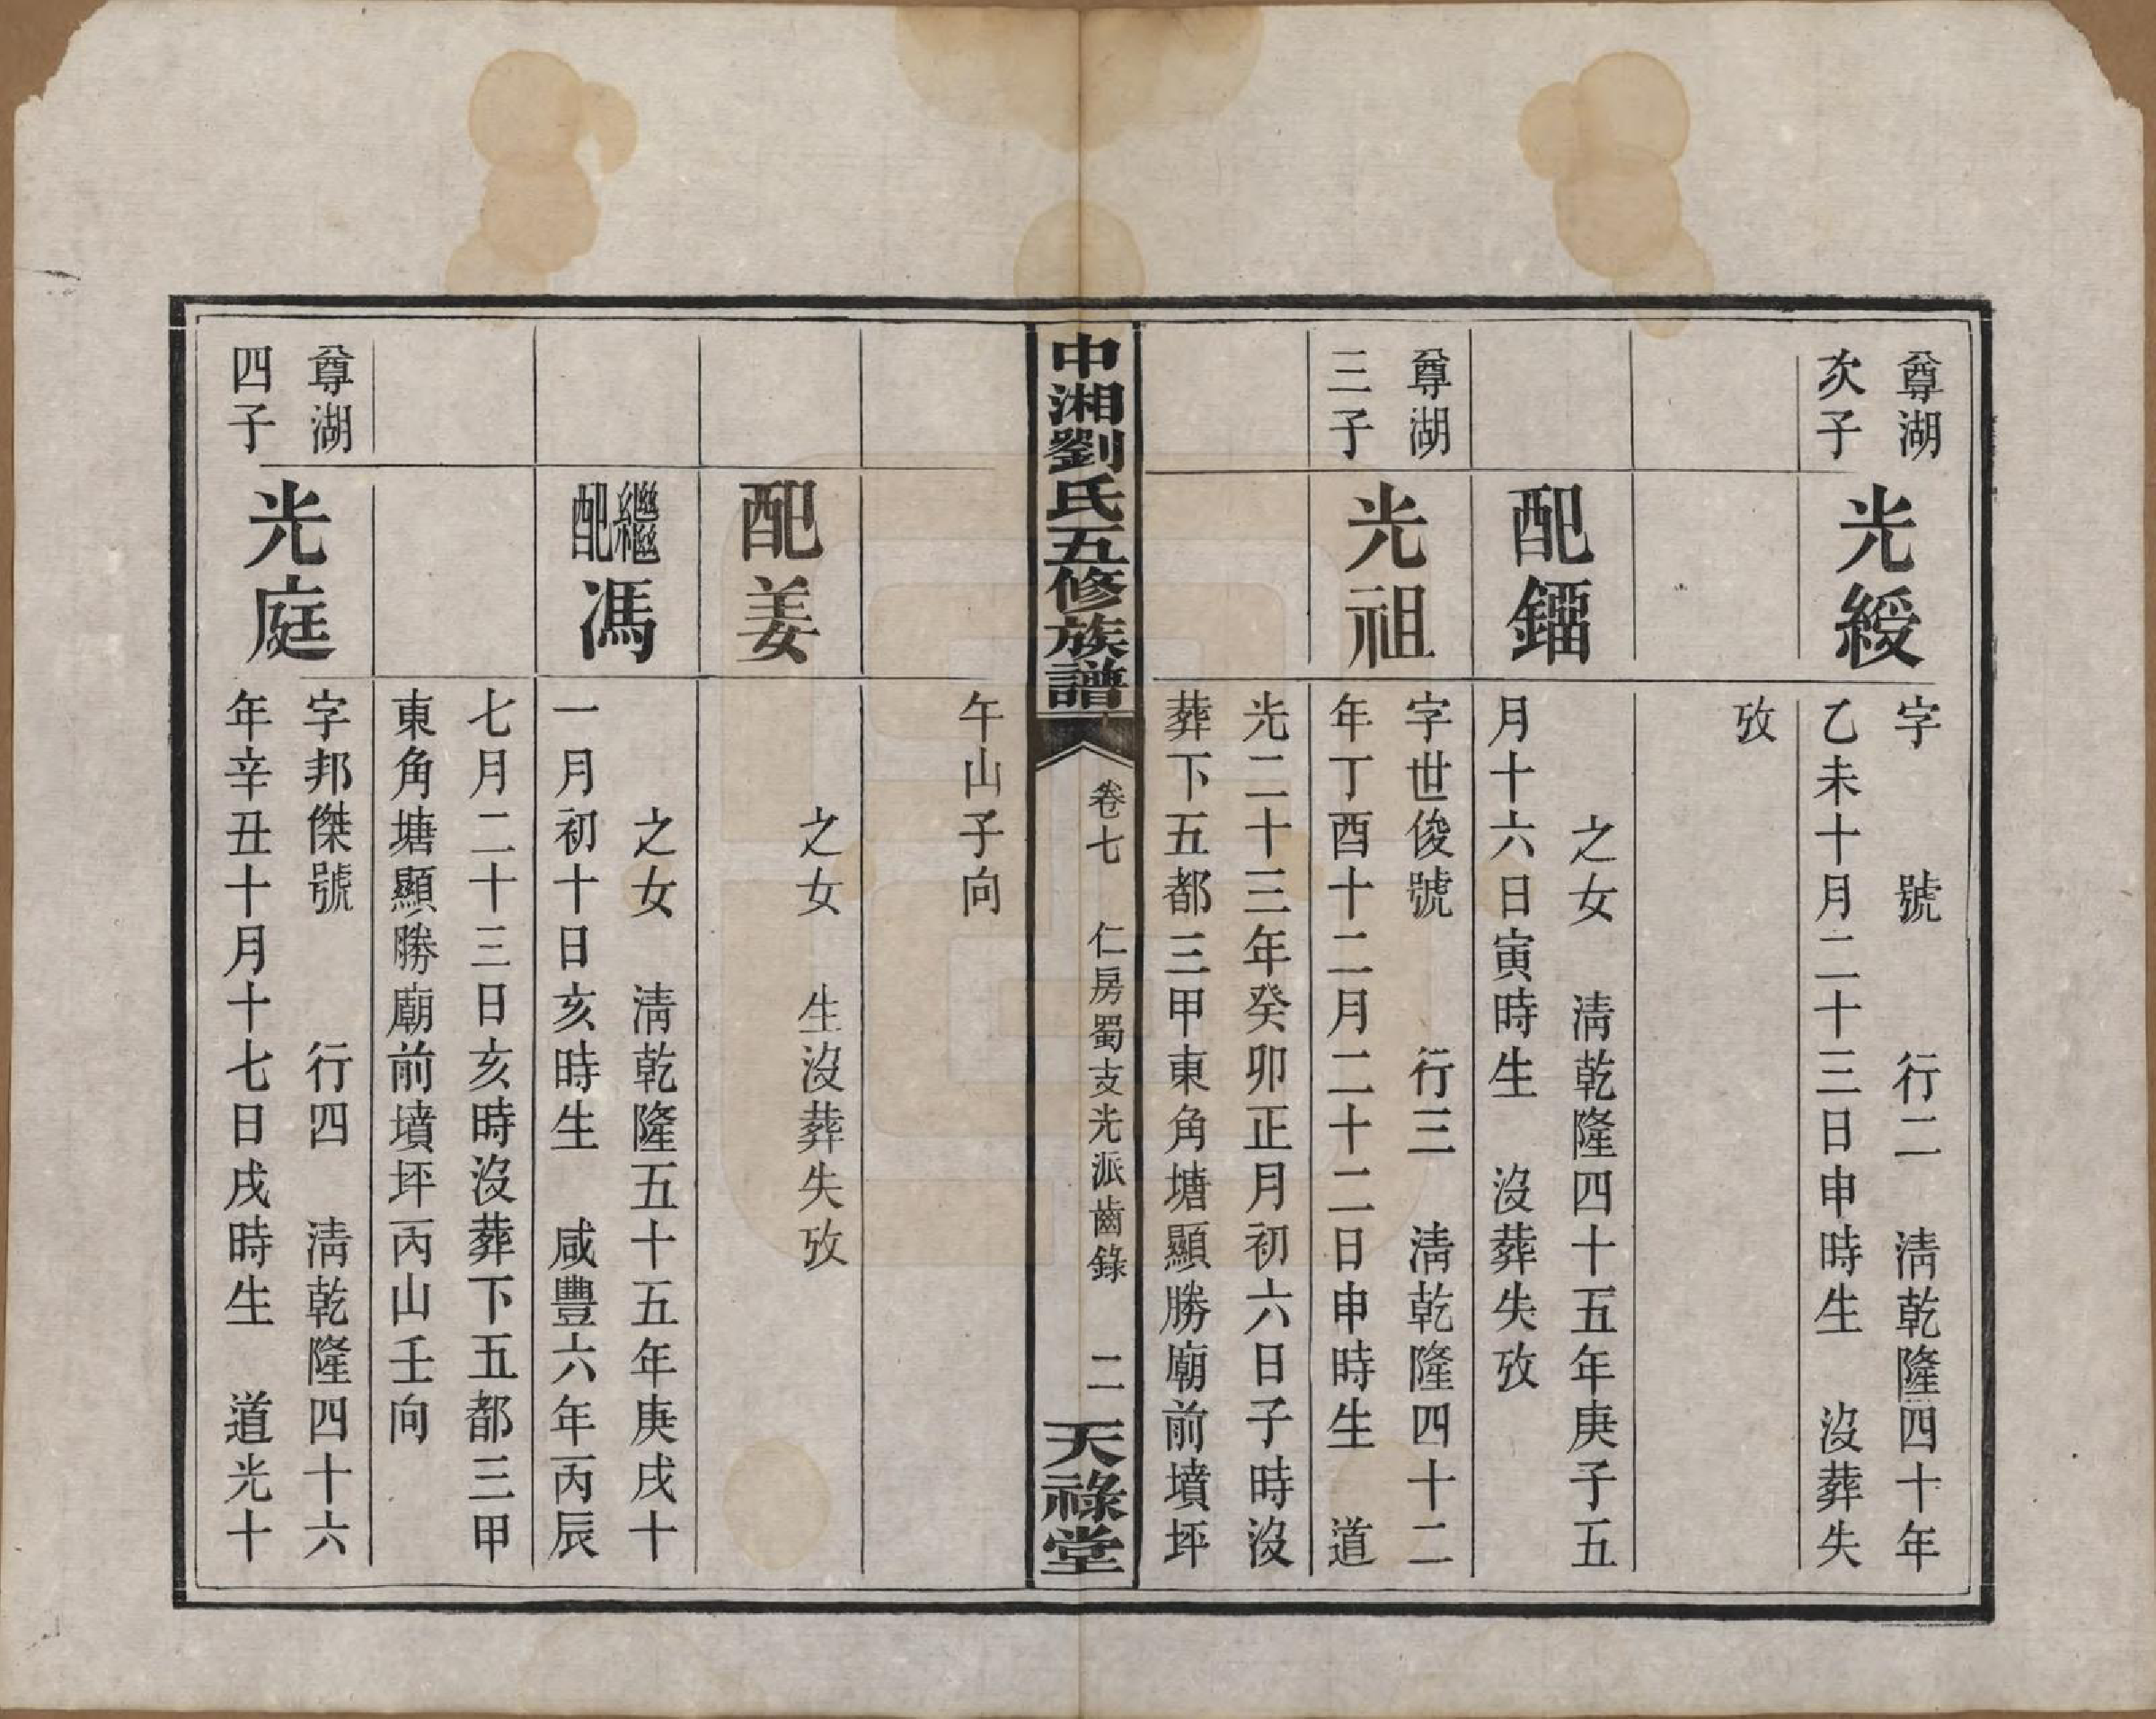 尊湖
次子
光綬
字　號　行二　淸乾隆四十年
乙未十月二十三日申時生　沒葬失
攷
配鐂
之女　淸乾隆四十五年庚子五
月十六日寅時生　沒葬失攷
尊湖
三子
光祖
字世俊號　行三　淸乾隆四十二
年丁酉十二月二十二日申時生　道
光二十三年癸卯正月初六日子時沒
葬下五都三甲東角塘顯勝廟前墳坪
中湘劉氏五修族譜
卷七　仁房蜀支光派齒錄　二
天祿堂
午山子向
配姜
之女　生沒葬失攷
繼配馮
之女　淸乾隆五十五年庚戌十
一月初十日亥時生　咸豐六年丙辰
七月二十三日亥時沒葬下五都三甲
東角塘顯勝廟前墳坪丙山壬向
尊湖
四子
光庭
字邦傑號　行四　淸乾隆四十六
年辛丑十月十七日戌時生　道光十